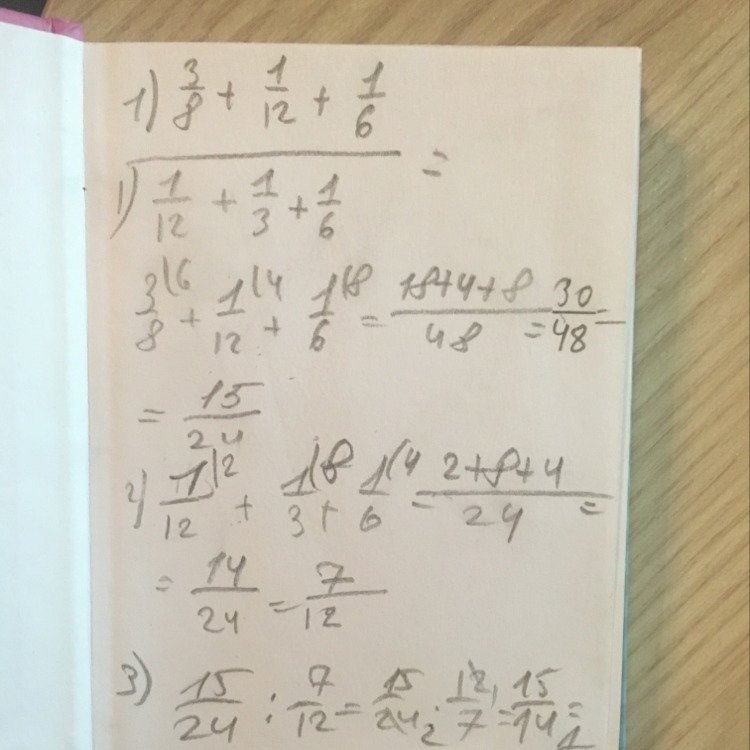 1) 3/8 + 1/12 + 1/6
1) 1/12 + 1/3 + 1/6 =
3/8 (6 + 1/12 (4 + 1/6 (8 = 18+4+8/48 = 30/48 =
= 15/24
2) 1/12 |2 + 1/3 (8 + 1/6 (4 = 2+8+4/24 =
= 14/24 = 7/12
3) 15/24 : 7/12 = 15/24 2 · 12 1/7 = 15/14 =